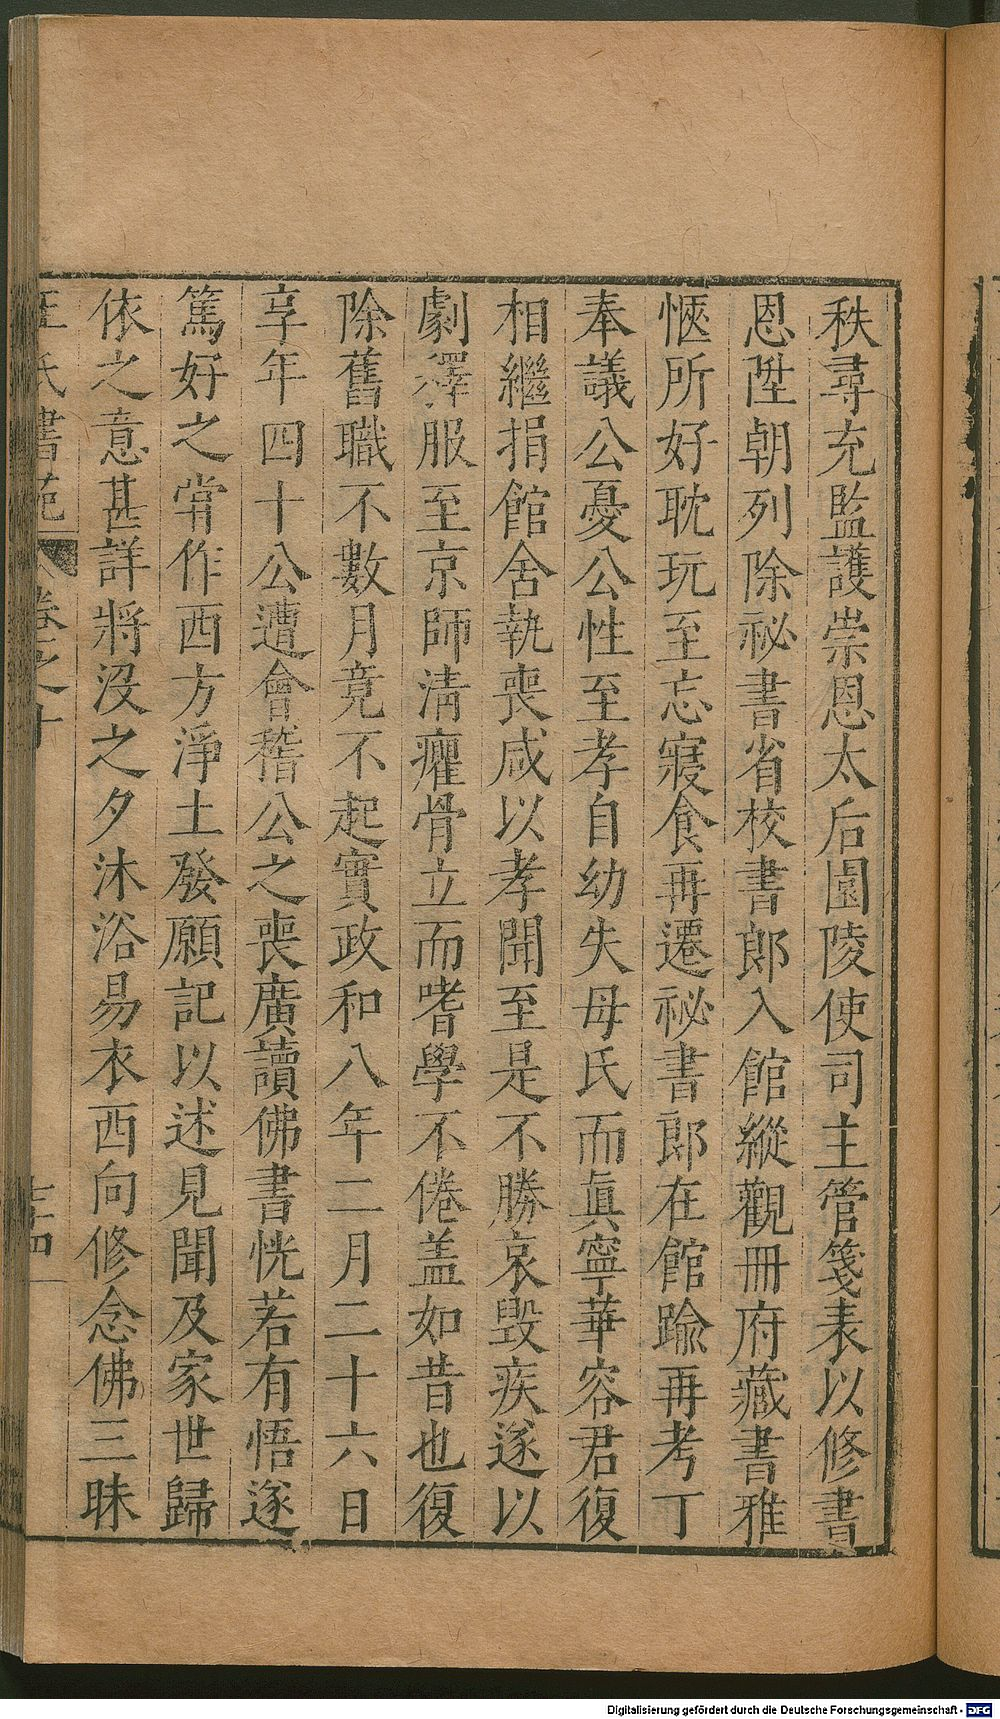 秩尋充監護崇恩太后園陵使司主管箋表以修書
恩陞朝列除祕書省校書郎入館縱觀冊府藏書雅
愜所好耽玩至忘寢食再遷祕書郎在館踰再考丁
奉議公憂公性至孝自幼失母氏而眞寧華容君復
相繼捐館舍執喪咸以孝聞至是不勝哀毀疾遂以
劇釋服至京師淸癯骨立而嗜學不倦盖如昔也復
除舊職不數月竟不起實政和八年二月二十六日
享年四十公遭會稽公之喪廣讀佛書恍若有悟遂
篤好之甞作西方淨土發願記以述見聞及家世歸
依之意甚詳將沒之夕沐浴易衣西向修念佛三昧
王氏書苑 卷之十 七十四
Digitalisierung gefördert durch die Deutsche Forschungsgemeinschaft - DFG